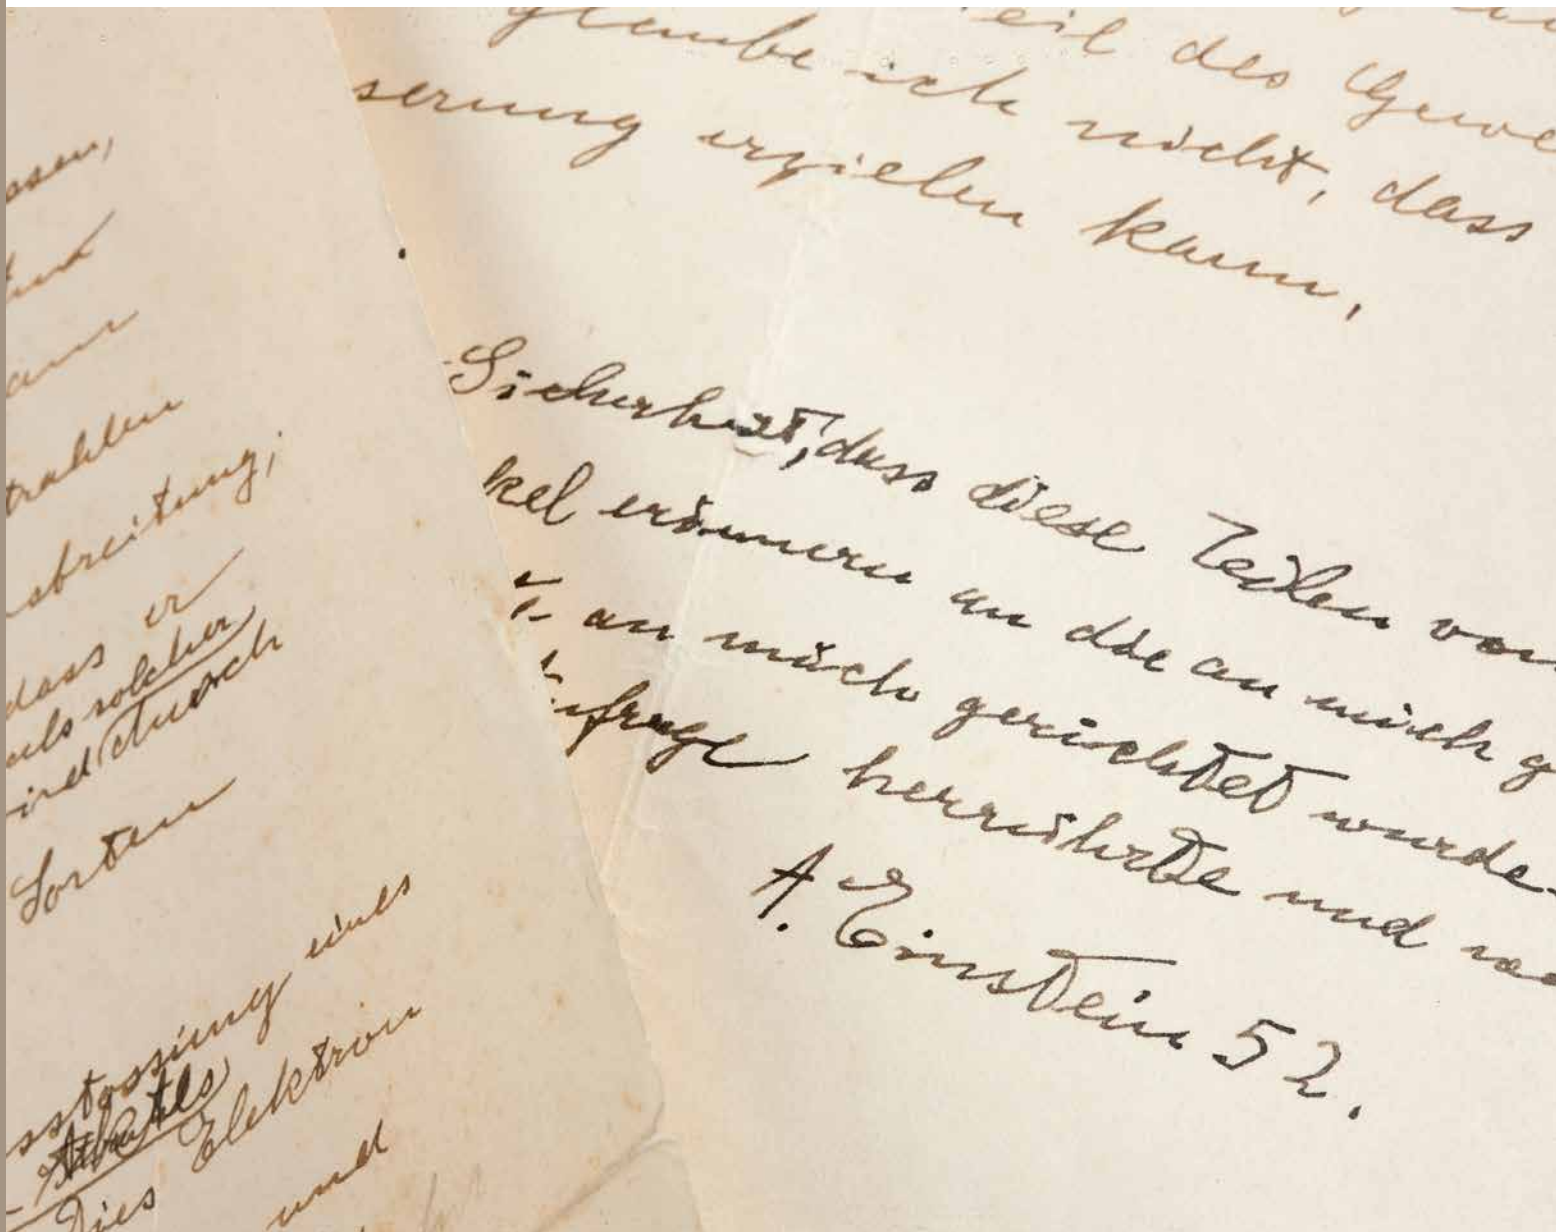 ssen,
trahlen
sbreitung;
dass er
als solcher
ird durch
Sorten
sstossung eines
Dies Elektron
und
eil des Gewe
glaube ich nicht, dass
serung erzielen kann.
Sicherheit, dass diese Zeilen von
kel erinnern an die an mich g
an mich gerichtet wurde.
frage herrührte und
A. Einstein 52.